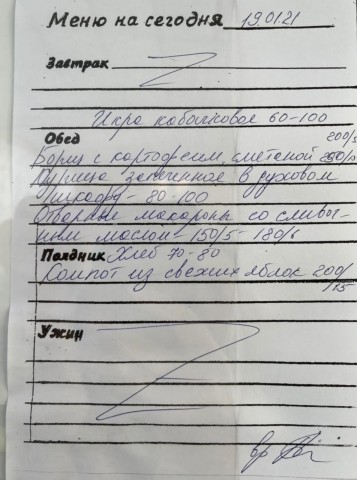 Меню на сегодня 19.01.21
Завтрак
Икра кабачковое 60-100
Обед 200/5
Борщ с картофелем, сметаной 250/10
Курица запеченное в духовом
шкафу - 80-100
Отварные макароны со сливоч-
ным маслом - 150/5 - 180/6
Полдник Хлеб 70-80
Компот из свежих яблок 200/
15
Ужин
вр